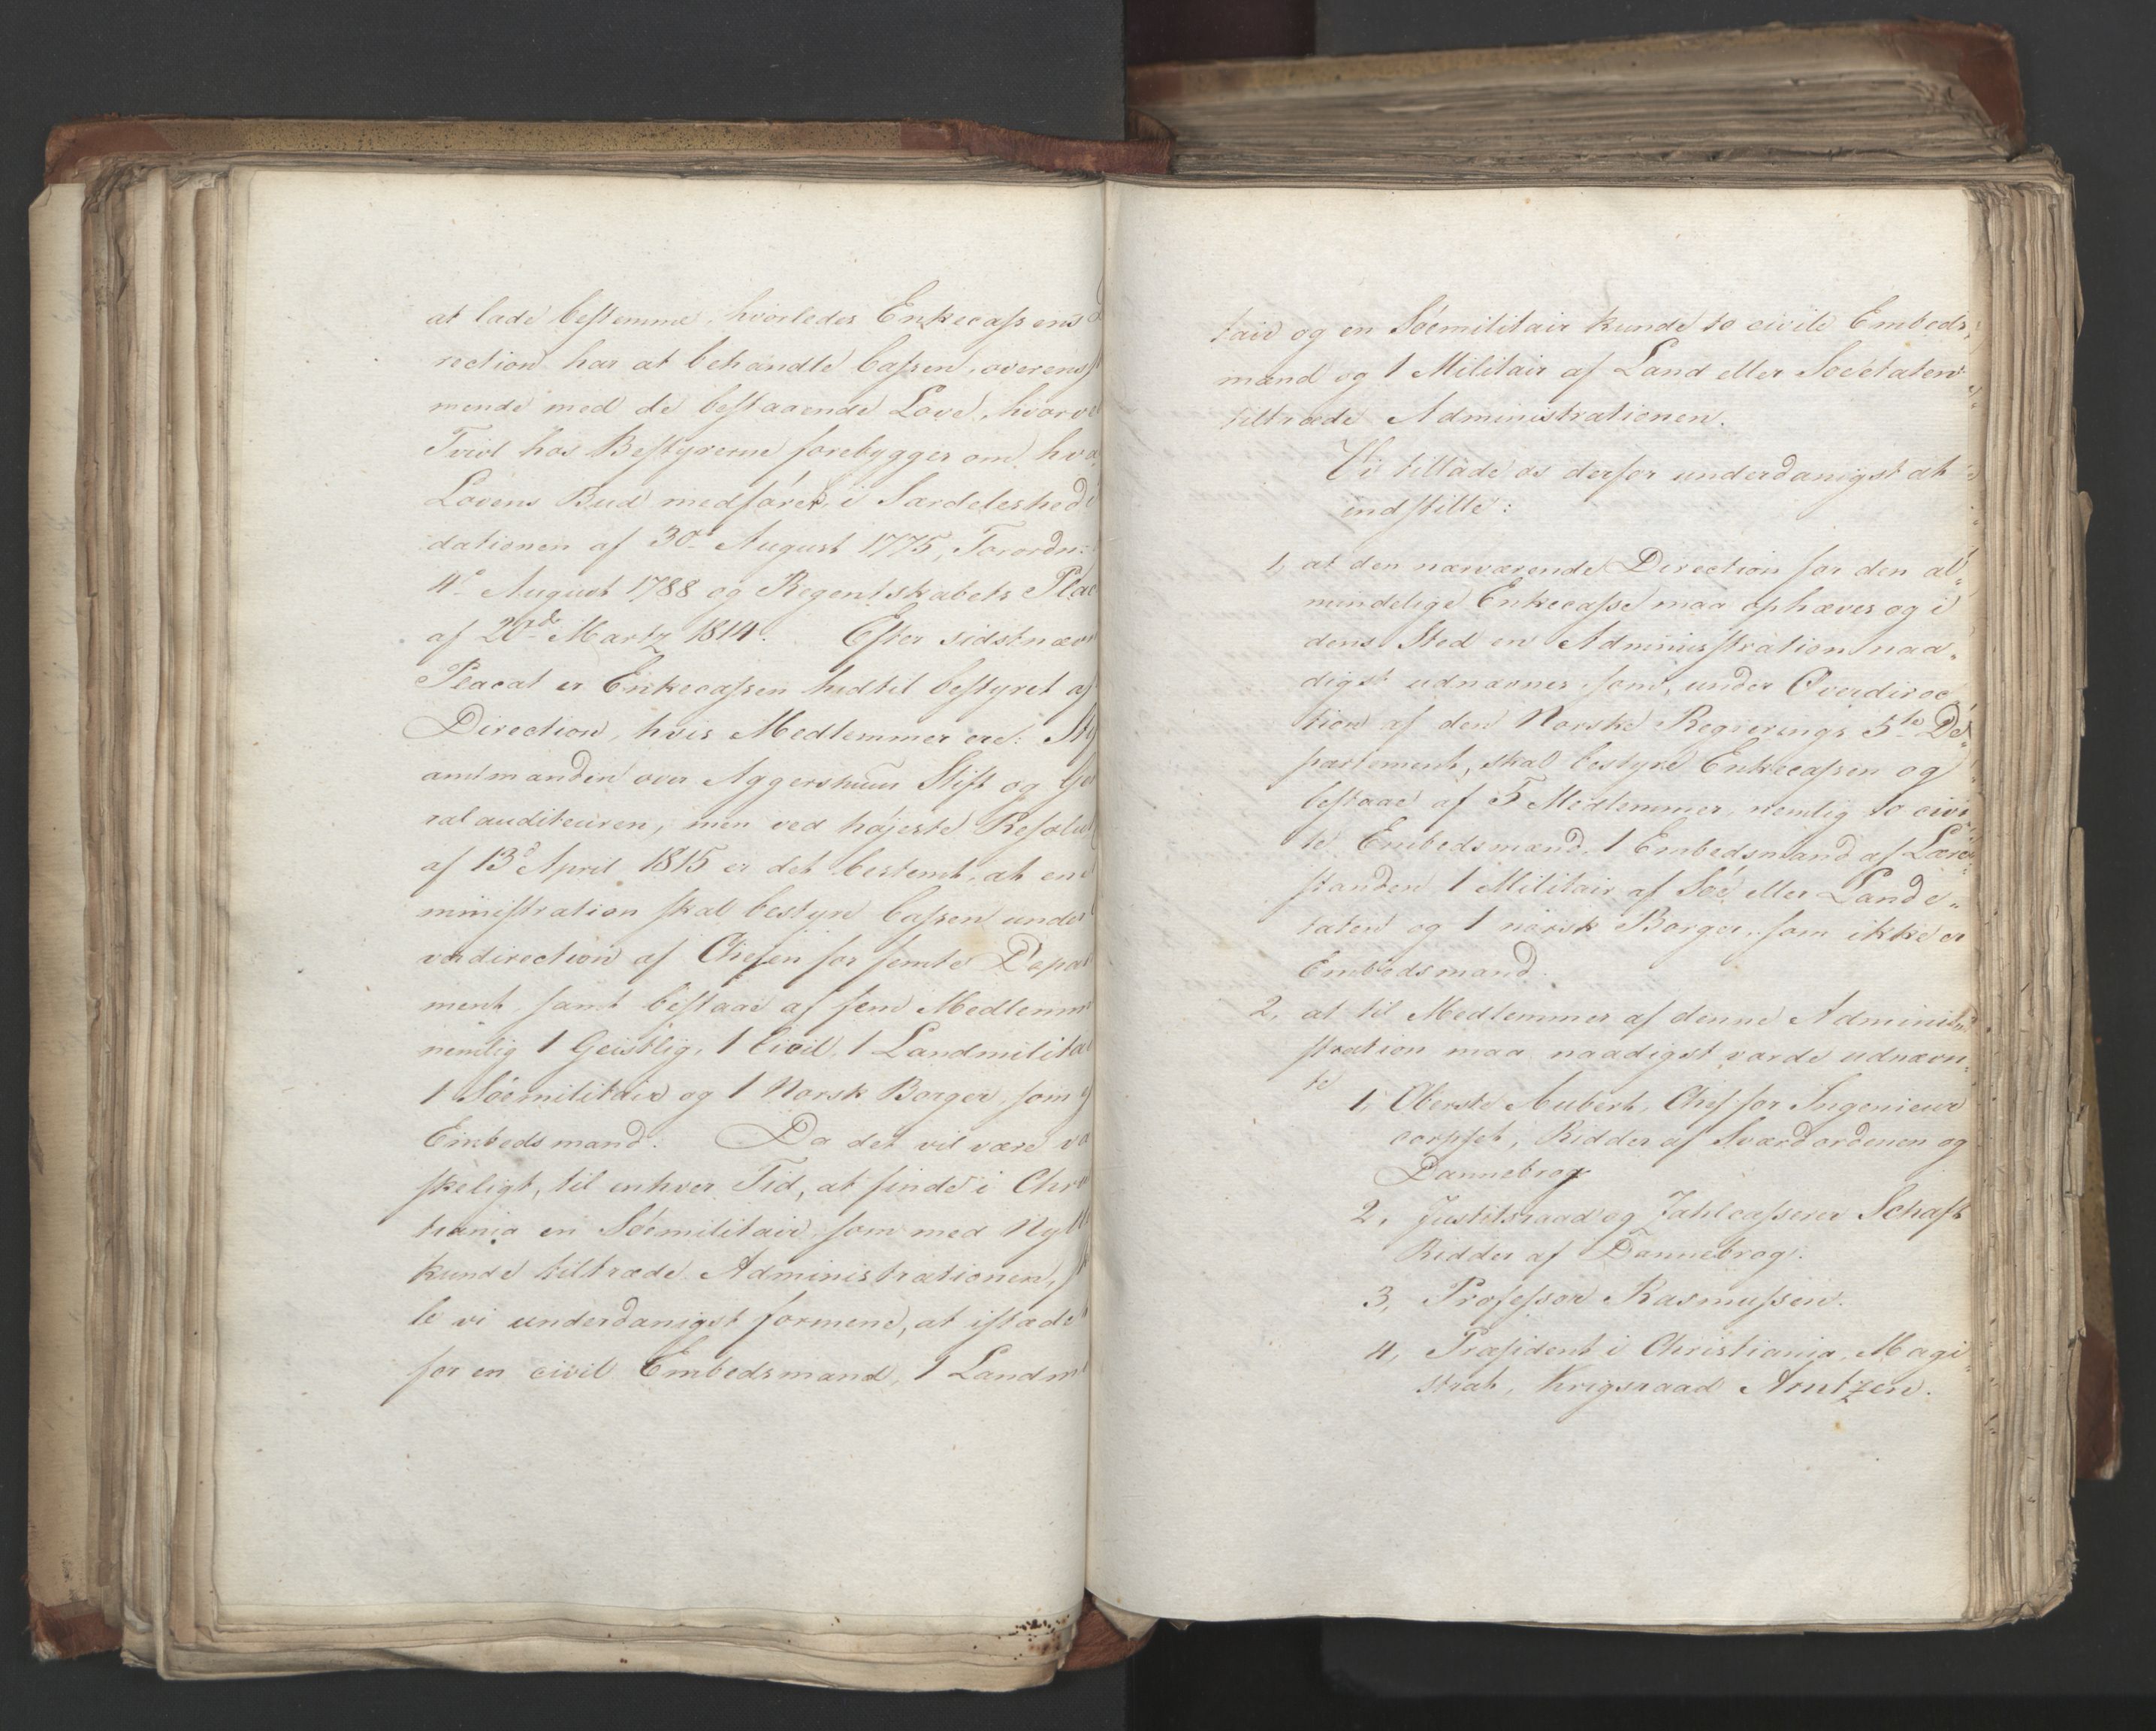 at lade bestemme, hvorledes Enkecassens
rection har at behandle Cassen, overens
mende med de bestaaende Love, hvorve
Tvivl hos Bestyrerne forebygges om, hva
Lovens Bud medfører, i Særdeleshed
dationen af 30d August 1775, Forordn:
4d August 1788 og Regentskabets Plac
af 20de Martz 1814. Efter sidstnævn
Placat er Enkecassen hidtil bestyret af
Direction, hvis Medlemmer ere: Sti
amtmanden over Aggershuus Stift og Ge
ral auditeuren, men ved højeste Resolut
af 13d April 1815 er det bestemt, at en
ministration skal bestyre Cassen under
verdirection af Chefen for femte Depar
ment, samt bestaae af fem Medlemm
nemlig 1 Geistlig, 1 Civil, 1 Landmilitai
1 Søemilitair og 1 Norsk Borger, som
Embedsmand. Da det vil være va
skeligt, til enhver Tid, at finde i Chri
tiania en Søemilitair, som med Nytt
kunde tiltræde Administrationen,
le vi underdanigst formene, at istæde
for en civil Embedsmand, 1 Landm
tair og en Søemilitair kunde to civile Embeds,
mænd og 1 Militair af Land eller Søeetaten
tiltræde Administrationen.
Vi tillade os derfor underdanigst at
indstille:
1, at den nærværende Direction for den al,,
mindelige Enkecasse maa ophæves og i
dens Sted en Administration naa,,
digst udnævnes som, under Overdirec
tion af den Norske Regjerings 5te De,,
partement, skal bestyre Enkecassen og
bestaae af 5 Medlemmer, nemlig to civi
le Embedsmænd, 1 Embedsmand af Lære,,
standen 1 Militair af Søe eller Lande,,
taten og 1 norsk Borger, som ikke er
Embedsmand.
2, at til Medlemmer af denne Admini,,
stration maa naadigst vorde udnævn,
te
1, Oberste Aubert, Chef for Ingenieur
corpset, Ridder af Sværdordenen og
Dannebrog
2, Justitsraad og Zahlcasserer Schaft
Ridder af Dannebrog.
3, Professor Rasmussen.
4, Præsident i Christiania Magi
strat, Krigsraad Arntzen.